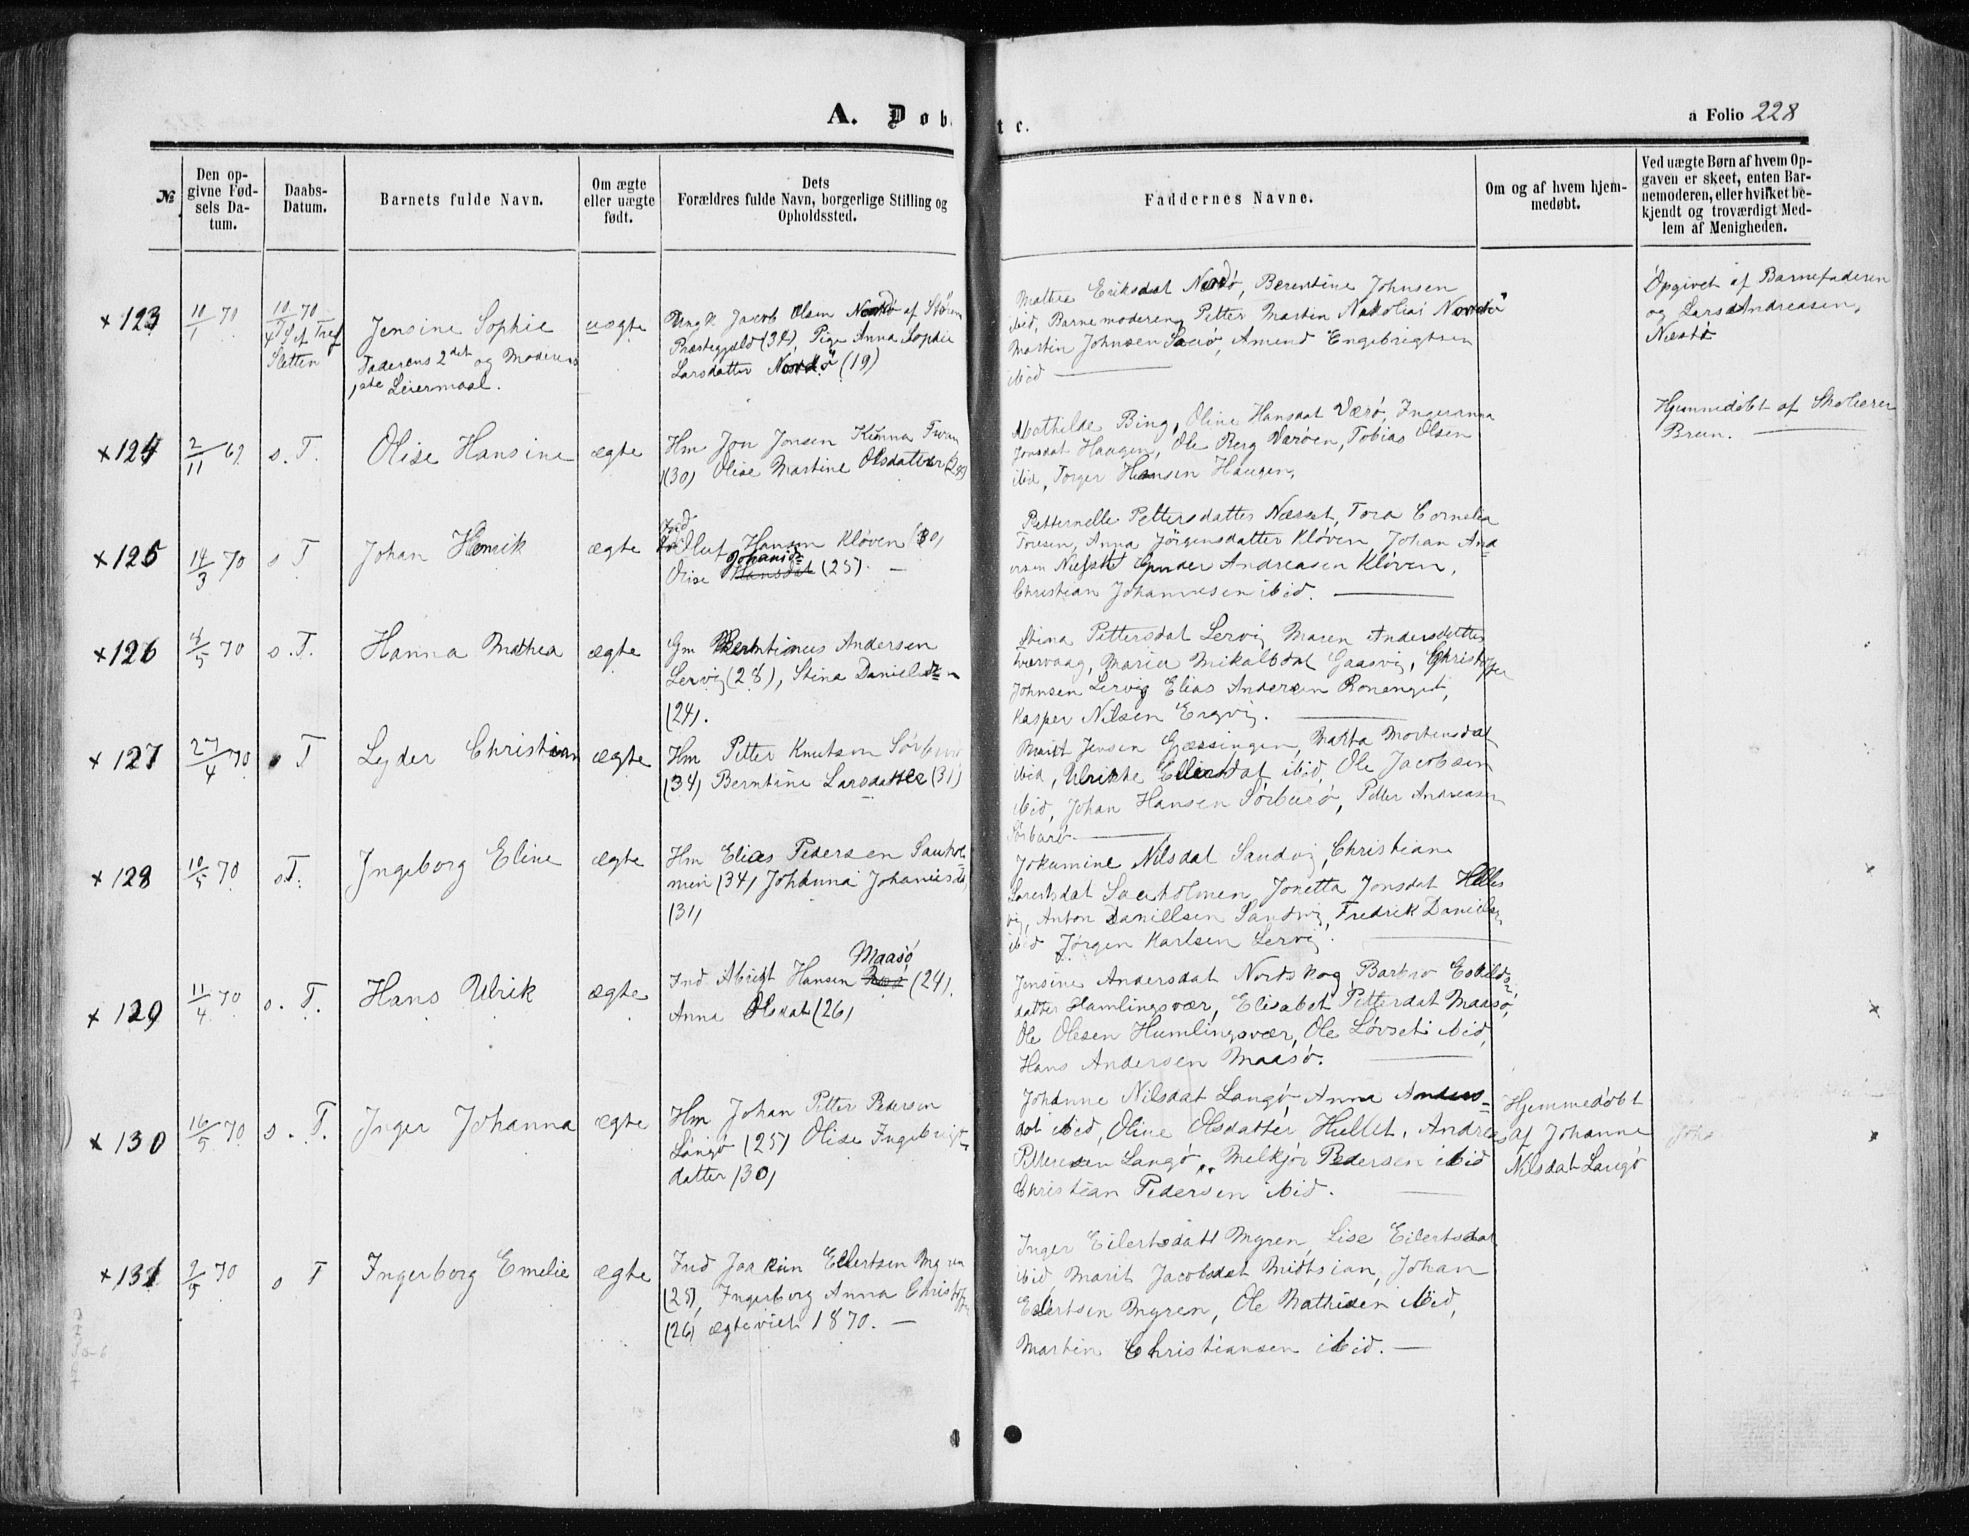 A. Døb
t c.
a Folio 228
№
Den op-
givne Fød-
sels Da-
tum.
Daabs-
Datum.
Barnets fulde Navn.
Om ægte
eller uægte
født.
Dets
Forældres fulde Navn, borgerlige Stilling og
Opholdssted.
Faddernes Navne.
Om og af hvem hjem-
medøbt.
Ved uægte Børn af hvem Op-
gaven er skeet, enten Bar-
nemoderen, eller hvilket be-
kjendt og troværdigt Med-
lem af Menigheden.
x 123
10/1 70
10/ 70
4 S. ef Tref
Sletten
Jensine Sophie
Faderens 2det og Moderens
1ste Leiermaal.
uægte
Ungk Jacob Olsen af Støren
Præstegjæld (32), Pige Anna Sophie
Larsdatter (19)
Mathea Eriksdat Berentine Johnsen
ibid, Barnemoderen, Petter Martin Nikolai
Martin Johnsen Amund Engebrigtsen
ibid
Opgivet af Barnefaderen
og Lars Andreasen,
x 124
2/11 69
s. T.
Olise Hansine
ægte
Hm Jon Jonsen Kunna
(30) Olise Martine Olsdatter (28)
Mathilde Bing, Oline Hansdat Værø, Ingeranna
Jonsdat Haugen, Ole Berg Værøen, Tobias Olsen
ibid, Torger Hansen Haugen,
Hjemmedøbt af Skolærer
Breen.
x 125
14/3 70
s T
Johan Henrik
ægte
Ind
Oluf Hansen Kløven (30)
Johanisd=
Olise Hansdat (25). —
Petternelle Pettersdatter Næsset, Tora Cornelia
Toresen, Anna Jørgensdatter Kløven, Johan And
ersen Gunder Andreasen Kløven,
Christian Johannesen ibid.
x 126
4/5 70
s. T.
Hanna Mathea
ægte
Gm Berntinus Andersen
Lervig (28), Stina Danielsd=
(24).
Stina Pettersdat Lervig Maren Andersdatter
Maria Mikalsdat Gaasvig, Christoffer
Johnsen Lervig Elias Andersen
Kasper Nilsen
x 127
27/4 70
s T
Lyder Christian
ægte
Hm Petter Knutsen Sørburø
(34) Berntine Larsdatter (31)
Marit Jensen Gjæssingen, Marta Mortensdat
ibid, Ulrikke Ellersdat ibid, Ole Jacobsen
ibid, Johan Hansen Sørburø, Petter Andreasen
Sørburø.
x 128
10/5 70
s. T.
Ingeborg Eline
ægte
Hm Elias Pedersen Sauhol
men (34) Johanna Johanisd=
(31)
Jokumine Nilsdat Sandvig, Christiane
Lorentsdat Sauholmen, Jonetta Jonsdat Helles
vig, Anton Daniellsen Sandvig, Fredrik Danielsen
ibid Jørgen Karlsen Lervig.
x 129
11/4 70
s. T.
Hans Ulrik
ægte
Maasø
Ind Albrigt Hansen (24).
Anna Olsdat (26)
Jensine Andersdat Nordskog, Barbro Eskilds=
datter Hamlingsvær, Elisabet Petterdat Maasø,
Ole Olesen Humlingsvær, Ole Løvset ibid,
Hans Andersen Maasø.
x 130
16/5 70
s. T.
Inger Johanna
ægte
Hm Johan Petter Pedersen
Langø (25) Olise Ingebrigt=
datter (30)
Johanne Nilsdat Langø Anna Anders=
dat ibid, Oline Olsdatter Hullet, Andreas
Pettersen Langø, Melkjor Pedersen ibid
Christian Pedersen ibid.
Hjemmedøbt
af Johanne
Nilsdat Langø
x 131
9/5 70
s T
Ingerborg Emelie
ægte
Ind Joakim Eilertsen Myren
(25), Ingerborg Anna Christoff
(26) ægteviet 1870. —
Inger Eilertsdatt Myren, Lise Eilertsdat
ibid, Marit Jacobsdat Midtsian, Johan
Eilertsen Myren, Ole Mathisen ibid,
Martin Christiansen ibid. —